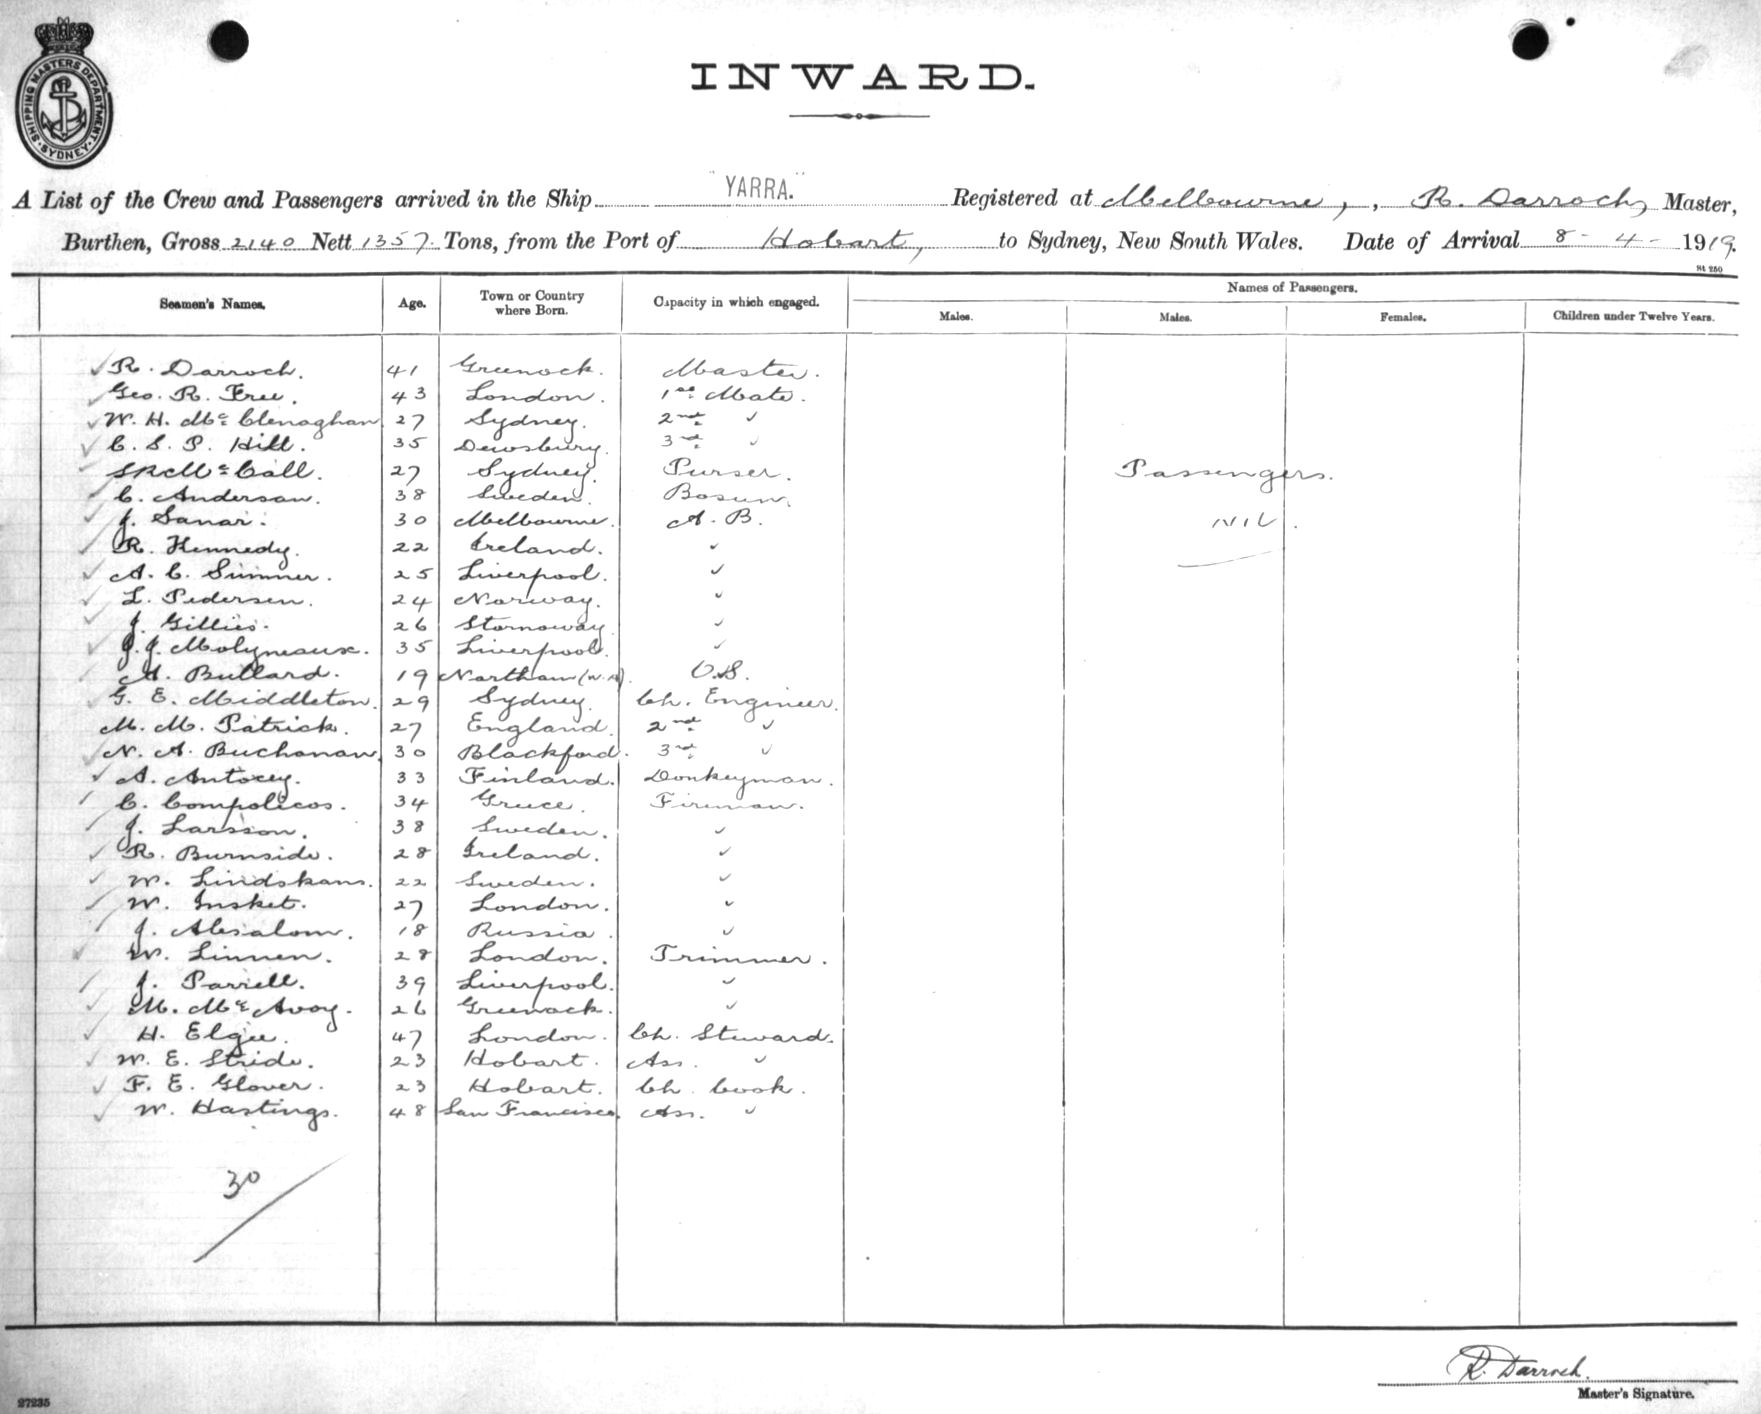 SHIPPING MASTERS DEPARTMENT. SYDNEY.
INWARD.
A List of the Crew and Passengers arrived in the Ship "YARRA." Registered at Melbourne, , R. Darroch, Master,
Burthen, Gross 2140 Nett 1357. Tons, from the Port of Hobart, to Sydney, New South Wales. Date of Arrival 8 - 4 - 1919.
St 250
Seamen's Names. Age. Town or Country where Born. Capacity in which engaged. Names of Passengers.
Males. Males. Females. Children under Twelve Years.
R. Darroch. 41 Greenock. Master.
Geo. R. Free. 43 London. 1st Mate.
W. H. McClenaghan 27 Sydney. 2nd "
C. S. P. Hill. 35 Dewsbury. 3rd "
McCall. 27 Sydney. Purser. Passengers.
C. Anderson. 38 Sweden. Bosun.
J. Sanar. 30 Melbourne. A. B. NIL.
R. Kennedy. 22 Ireland. "
A. C. Sumner. 25 Liverpool. "
L. Pedersen. 24 Norway. "
J. Gillies. 26 Stornoway. "
J. J. Molyneaux. 35 Liverpool. "
A. Bullard. 19 Northam (W.A). O.S.
G. E. Middleton. 29 Sydney. Ch. Engineer.
M. M. Patrick. 27 England. 2nd "
N. A. Buchanan. 30 Blackford. 3rd "
A. 33 Finland. Donkeyman.
C. Compolicos. 34 Greece. Fireman.
J. Larsson. 38 Sweden. "
R. Burnside. 28 Ireland. "
W. Lindskans. 22 Sweden. "
W. Insket. 27 London. "
J. Absalom. 18 Russia. "
W. Linnen. 28 London. Trimmer.
J. 39 Liverpool. "
M. McAvoy. 26 Greenock. "
H. Elgie. 47 London. Ch. Steward.
W. E. Stride. 23 Hobart. Ass. "
F. E. Glover. 23 Hobart. Ch. Cook.
W. Hastings. 48 San Francisco. Ass. "
30
R. Darroch.
Master's Signature.
27235